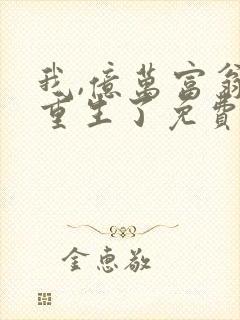 我,億萬富翁
重生了免費
金惠敬